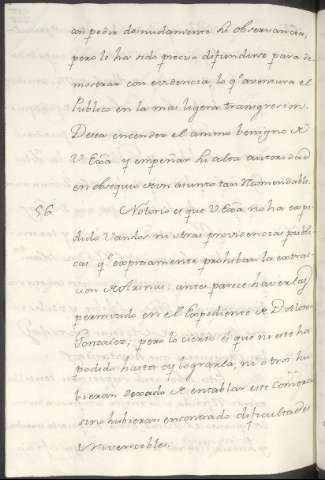 con pedir desnudamente su observancia,
pero le ha sido preciso difundirse para de
mostrar con evidencia lo qᵉ aventura el
Publico en la mas ligera transgresion.
Desea encender el animo benigno de
V. Exâ. y empeñar su alta autoridad
en obsequio de un asunto tan recomendable.
56. Notorio es que V. Exâ. no ha expe
dido Vandos ni otras providencias publi
cas qᵉ expresamente prohiban la extrac
cion de Arinas: antes parece haverlas
permitido en el Expediente de Dⁿ
Gonzalez, pero lo cierto es que ni este ha
podido hasta oy lograrla, ni otros hu
bieran dexado de entablar este comercio
sino hubieran encontrado dificultades
invencibles.